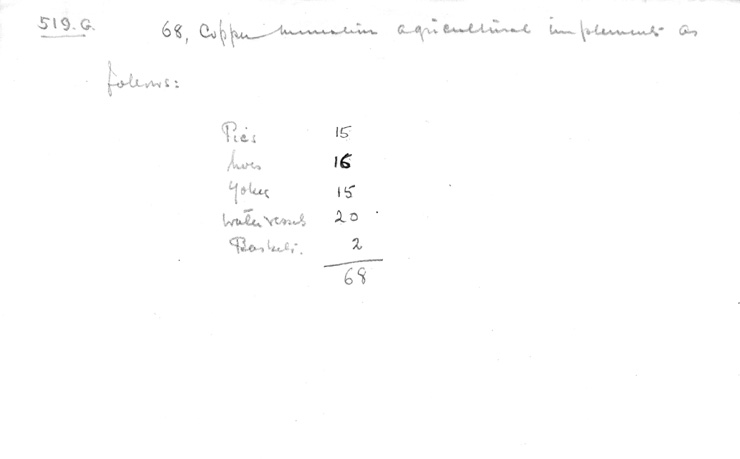 519.G. 68, Copper miniature agricultural implements as
follows:
Pics 15
hoes 16
Yokes 15
Water vessels 20
Baskets. 2
68